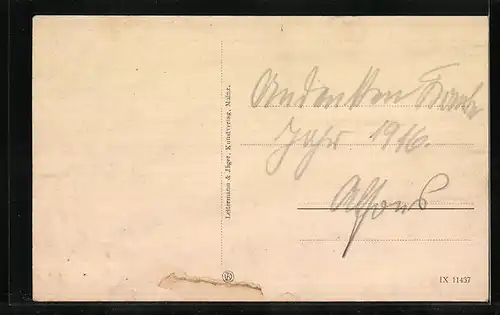 Andenken
Jahr 1916.
Alfons
Lettermann & Jäger, Kunstverlag, Mainz.
IX 11437